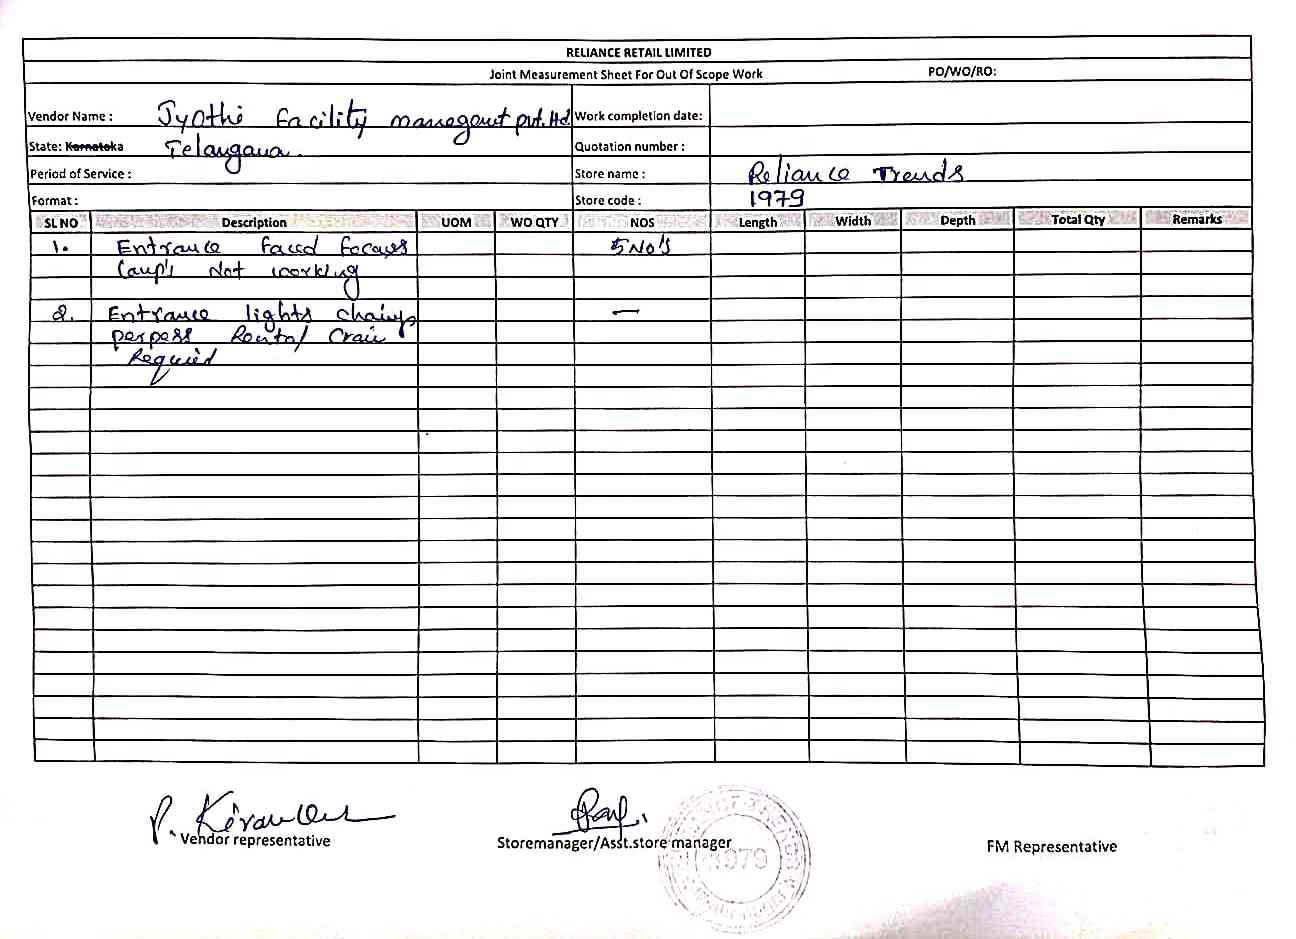 RELIANCE RETAIL LIMITED
Joint Measurement Sheet For Out Of Scope Work
PO/WO/RO:
Vendor Name : Jyothi Facility management pvt. ltd
Work completion date:
State: Karnataka Telangana.
Quotation number :
Period of Service :
Store name : Reliance Trends
Format :
Store code : 1979
SL NO Description UOM WO QTY NOS Length Width Depth Total Qty Remarks
1. Entrance focus 5 No's
Lamp's Not working
2. Entrance lights —
Rental
Required
P. Kiran
Vendor representative
Storemanager/Asst.store manager
1979
FM Representative